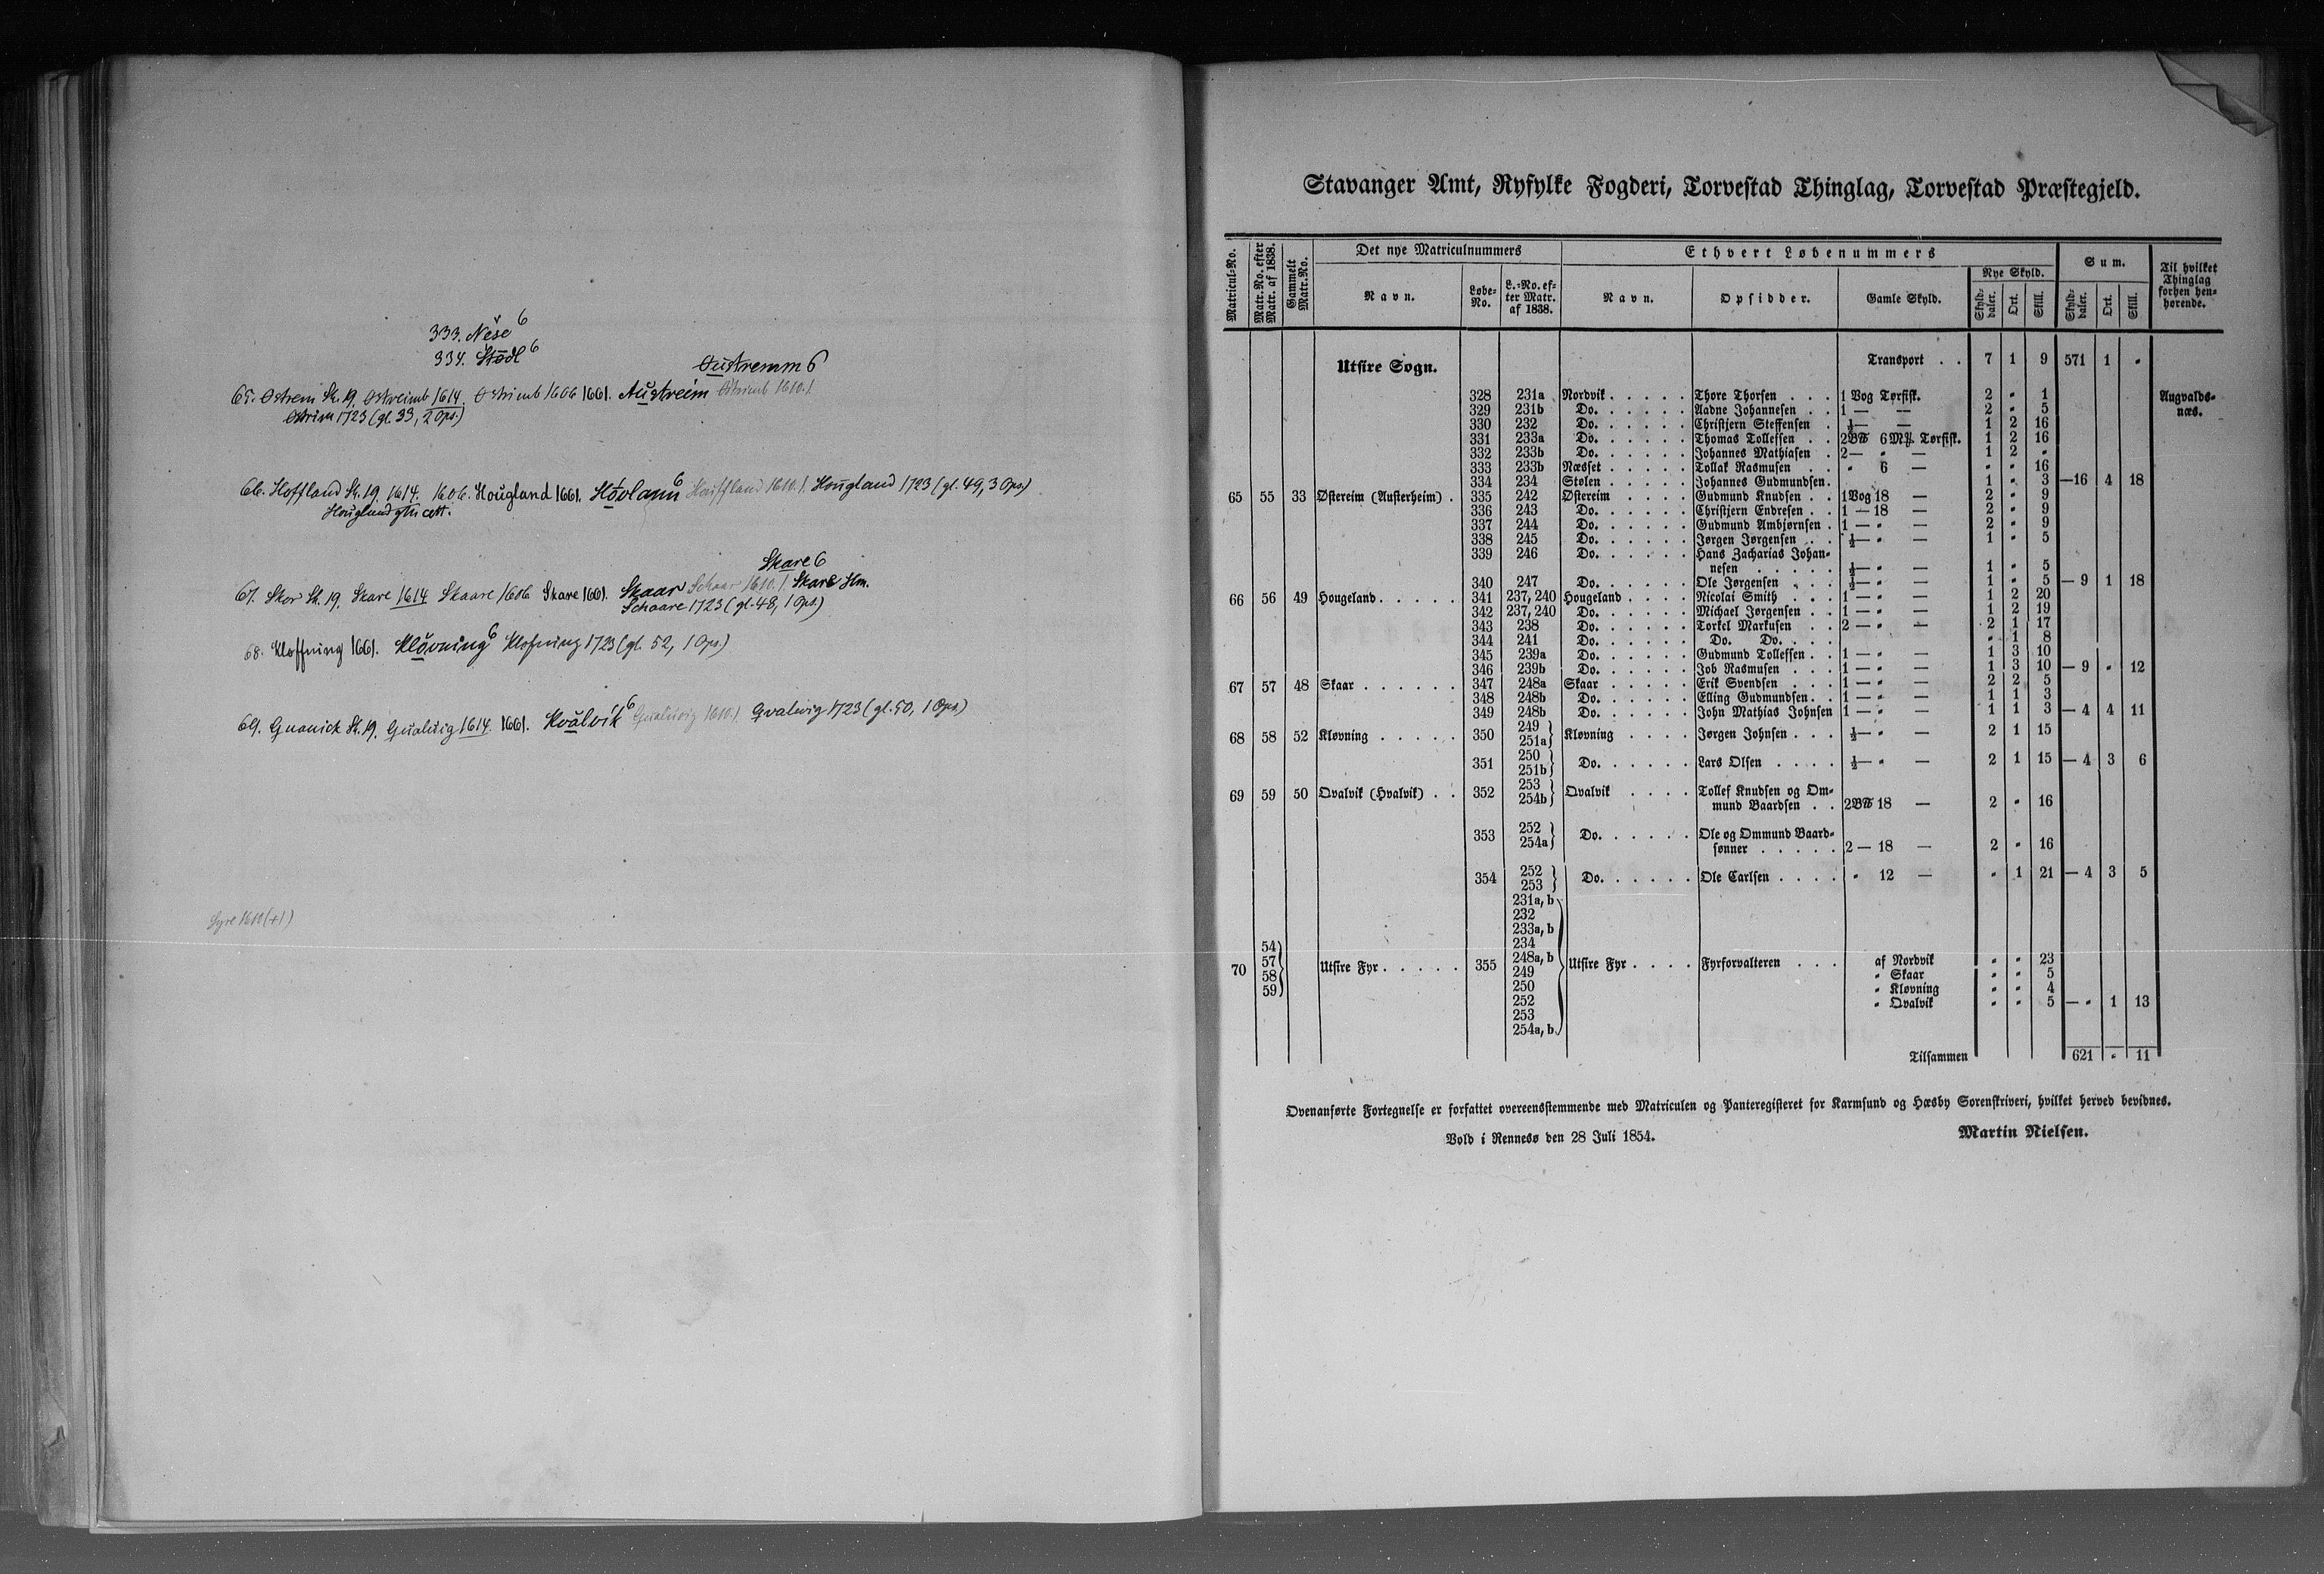 333. Nese 6
334. Stødl 6
Øustremm 6
65. Østrem St. 19. Østreimb 1614. Østrimb 1606 1661. Austreim Østrimb 1610.1.
Østrim 1723 (gl. 33, 2 Ops.)
66. Hoffland St. 19. 1614. 1606. Hougland 1661. Hovlann 6 Houffland 1610.1. Hougland 1723 (gl. 49, 3 Ops.)
Skare 6
67. Skor St. 19. Skare 1614 Skaare 1606 Skare 1661. Skaar Schaar 1610.1 Skare Hm.
Schaare 1723 (gl. 48, 1 Ops.)
68. Kloffning 1661. Kløvning 6 Klofning 1723 (gl. 52, 1 Ops.)
69. Quauick St. 19. Qualuig 1614. 1661. Kvalvik 6 Qualuig 1610.1. Qvalvig 1723 (gl. 50, 1 Ops.)
Syre 1610 (+1)
Stavanger Amt, Ryfylke Fogderi, Torvestad Thinglag, Torvestad Præstegjeld.
Matricul-No. | Matr.No. efter Matr. af 1838. | Gammelt Matr.No. | Det nye Matriculnummers | Ethvert Løbenummers | Sum. | Til hvilket Thinglag forhen henhørende.
Navn. | Løbe-No. | L.-No. efter Matr. af 1838. | Navn. | Opsidder. | Gamle Skyld. | Nye Skyld. | Skylddaler. | Ort. | Skill. | Skylddaler. | Ort. | Skill.
Utsire Sogn. Transport . . 7 1 9 571 1 "
328 231a Nordvik . . . . . Thore Thorsen . . . 1 Vog Tørfisk. 2 " 1 Augvalds-
329 231b Do. . . . . . Aadne Johannesen . . 1 — — 2 " 5 næs.
330 232 Do. . . . . . Christjern Steffensen . ½ — — 1 2 16
331 233a Do. . . . . . Thomas Tollefsen . . 2 B℔ 6 M℔. Tørfisk. 1 2 16
332 233b Do. . . . . . Johannes Mathiasen . 2 — " — 1 2 "
333 233b Næsset . . . . . Tollak Rasmusen . . " 6 — " " 16
334 234 Stølen . . . . . Johannes Gudmundsen. 1 " 3 — 16 4 18
65 55 33 Østereim (Austerheim) . 335 242 Østereim . . . . Gudmund Knudsen . . 1 Vog 18 — 2 " 9
336 243 Do. . . . . . Christjern Endresen . . 1 — 18 — 2 " 9
337 244 Do. . . . . . Gudmund Ambjørnsen . 1 — " — 2 " 9
338 245 Do. . . . . . Jørgen Jørgensen . . ½ — " — 1 " 5
339 246 Do. . . . . . Hans Zacharias Johan-
nesen . . . . . ½ — " — 1 " 5
340 247 Do. . . . . . Ole Jørgensen . . . ½ — " — 1 " 5 — 9 1 18
66 56 49 Hougeland . . . . . 341 237, 240 Hougeland . . . . Nicolai Smith . . . 1 — " — 1 2 20
342 237, 240 Do. . . . . . Michael Jørgensen . . 1 — " — 1 2 19
343 238 Do. . . . . . Torkel Markusen . . 2 — " — 2 1 17
344 241 Do. . . . . . Do. Do. . . . " 1 8
345 239a Do. . . . . . Gudmund Tollefsen . . 1 — " — 1 3 10
346 239b Do. . . . . . Job Rasmusen . . . 1 — " — 1 3 10 — 9 " 12
67 57 48 Skaar . . . . . . 347 248a Skaar . . . . . Erik Svendsen . . . 1 — " — 2 2 5
348 248b Do. . . . . . Elling Gudmundsen . . 1 — " — 1 1 3
349 248b Do. . . . . . John Mathias Johnsen 1 — " — 1 1 3 — 4 4 11
68 58 52 Kløvning . . . . . 350 249 251a} Kløvning . . . . Jørgen Johnsen . . . ½ — " — 2 1 15
351 250 251b} Do. . . . . . Lars Olsen . . . . ½ — " — 2 1 15 — 4 3 6
69 59 50 Qvalvik (Hvalvik) . . 352 253 254b} Qvalvik . . . . Tollef Knudsen og Om-
mund Baardsen . . 2 B℔ 18 — 2 " 16
353 252 254a} Do. . . . . . Ole og Ommund Baard-
sønner . . . . . 2 — 18 — 2 " 16
354 252 253 } Do. . . . . . Ole Carlsen . . . . " 12 — " 1 21 — 4 3 5
231a, b
232
233a, b
54 234
57 248a, b af Nordvik " " 23
70 58 Utsire Fyr . . . . . 355 249 Utsire Fyr . . . . Fyrforvalteren . . . " Skaar " " 5
59 250 " Kløvning " " 4
252 " Qvalvik " " 5 — " 1 13
253
254a, b
Tilsammen 621 " 11
Ovenanførte Fortegnelse er forfattet overeensstemmende med Matriculen og Panteregisteret for Karmsund og Hæsby Sorenskriveri, hvilket herved bevidnes.
Vold i Rennesø den 28 Juli 1854. Martin Nielsen.